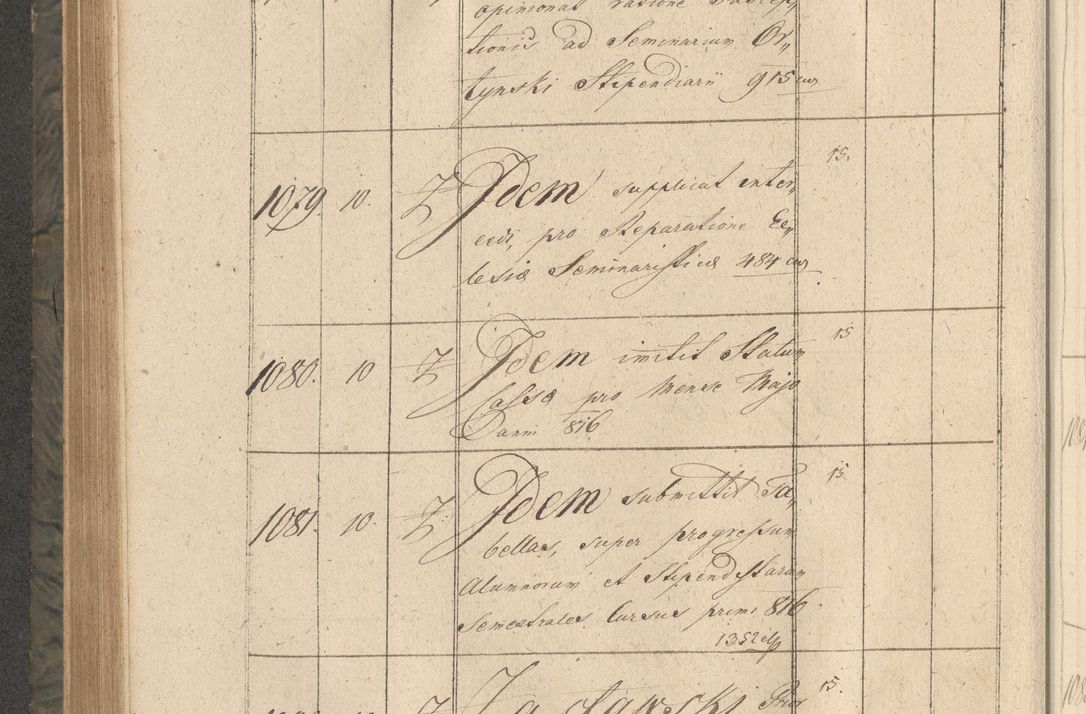 opinionat ratione suscep„
tionis ad Seminarium Or„
tynski Stipendiarii 915
15.
1079. 10. Z Idem supplicat inter„
cedi, pro Reparatione Ec„
lesiæ Seminaristicæ 484
15
1080. 10 Z Idem mittit Statum
Cassæ pro Mense Majo
816
15
1081. 10. Z Idem submittit Ta„
bellas, super progressum
Alumnorum et Stipendistarum
Semestrales Cursus primi 816.
1352
15.